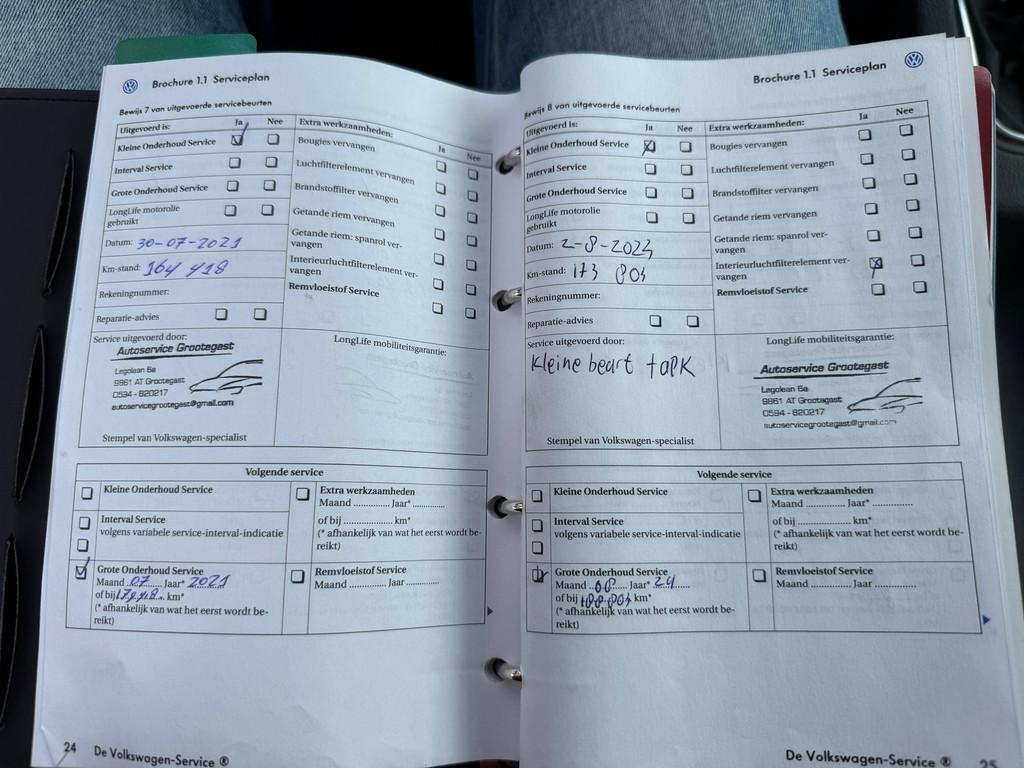 Brochure 1.1 Serviceplan
Bewijs 7 van uitgevoerde servicebeurten
Uitgevoerd is: Ja Nee
Kleine Onderhoud Service
Interval Service
Grote Onderhoud Service
LongLife motorolie
gebruikt
Datum: 30-07-2021
Km-stand: 164 418
Rekeningnummer:
Reparatie-advies
Extra werkzaamheden: Ja Nee
Bougies vervangen
Luchtfilterelement vervangen
Brandstoffilter vervangen
Getande riem vervangen
Getande riem: spanrol ver-
vangen
Interieurluchtfilterelement ver-
vangen
Remvloeistof Service
Service uitgevoerd door:
Autoservice Grootegast
Legolaan 6a
9861 AT Grootegast
0594 - 820217
autoservicegrootegast@gmail.com
Stempel van Volkswagen-specialist
LongLife mobiliteitsgarantie:
Volgende service
Kleine Onderhoud Service
Interval Service
volgens variabele service-interval-indicatie
Grote Onderhoud Service
Maand 07 Jaar* 2021
of bij km*
(* afhankelijk van wat het eerst wordt be-
reikt)
Extra werkzaamheden
Maand ............ Jaar* ............
of bij ................ km*
(* afhankelijk van wat het eerst wordt be-
reikt)
Remvloeistof Service
Maand ............ Jaar ............
24 De Volkswagen-Service ®
Brochure 1.1 Serviceplan
Bewijs 8 van uitgevoerde servicebeurten
Uitgevoerd is: Ja Nee
Kleine Onderhoud Service
Interval Service
Grote Onderhoud Service
LongLife motorolie
gebruikt
Datum: 2-8-2023
Km-stand: 173 803
Rekeningnummer:
Reparatie-advies
Extra werkzaamheden: Ja Nee
Bougies vervangen
Luchtfilterelement vervangen
Brandstoffilter vervangen
Getande riem vervangen
Getande riem: spanrol ver-
vangen
Interieurluchtfilterelement ver-
vangen
Remvloeistof Service
Service uitgevoerd door:
Kleine beurt + aPK
Stempel van Volkswagen-specialist
LongLife mobiliteitsgarantie:
Autoservice Grootegast
Legolaan 6a
9861 AT Grootegast
0594 - 820217
autoservicegrootegast@gmail.com
Volgende service
Kleine Onderhoud Service
Interval Service
volgens variabele service-interval-indicatie
Grote Onderhoud Service
Maand 08 Jaar* 24
of bij 188.803 km*
(* afhankelijk van wat het eerst wordt be-
reikt)
Extra werkzaamheden
Maand ............ Jaar* ............
of bij ................ km*
(* afhankelijk van wat het eerst wordt be-
reikt)
Remvloeistof Service
Maand ............ Jaar ............
De Volkswagen-Service ® 25